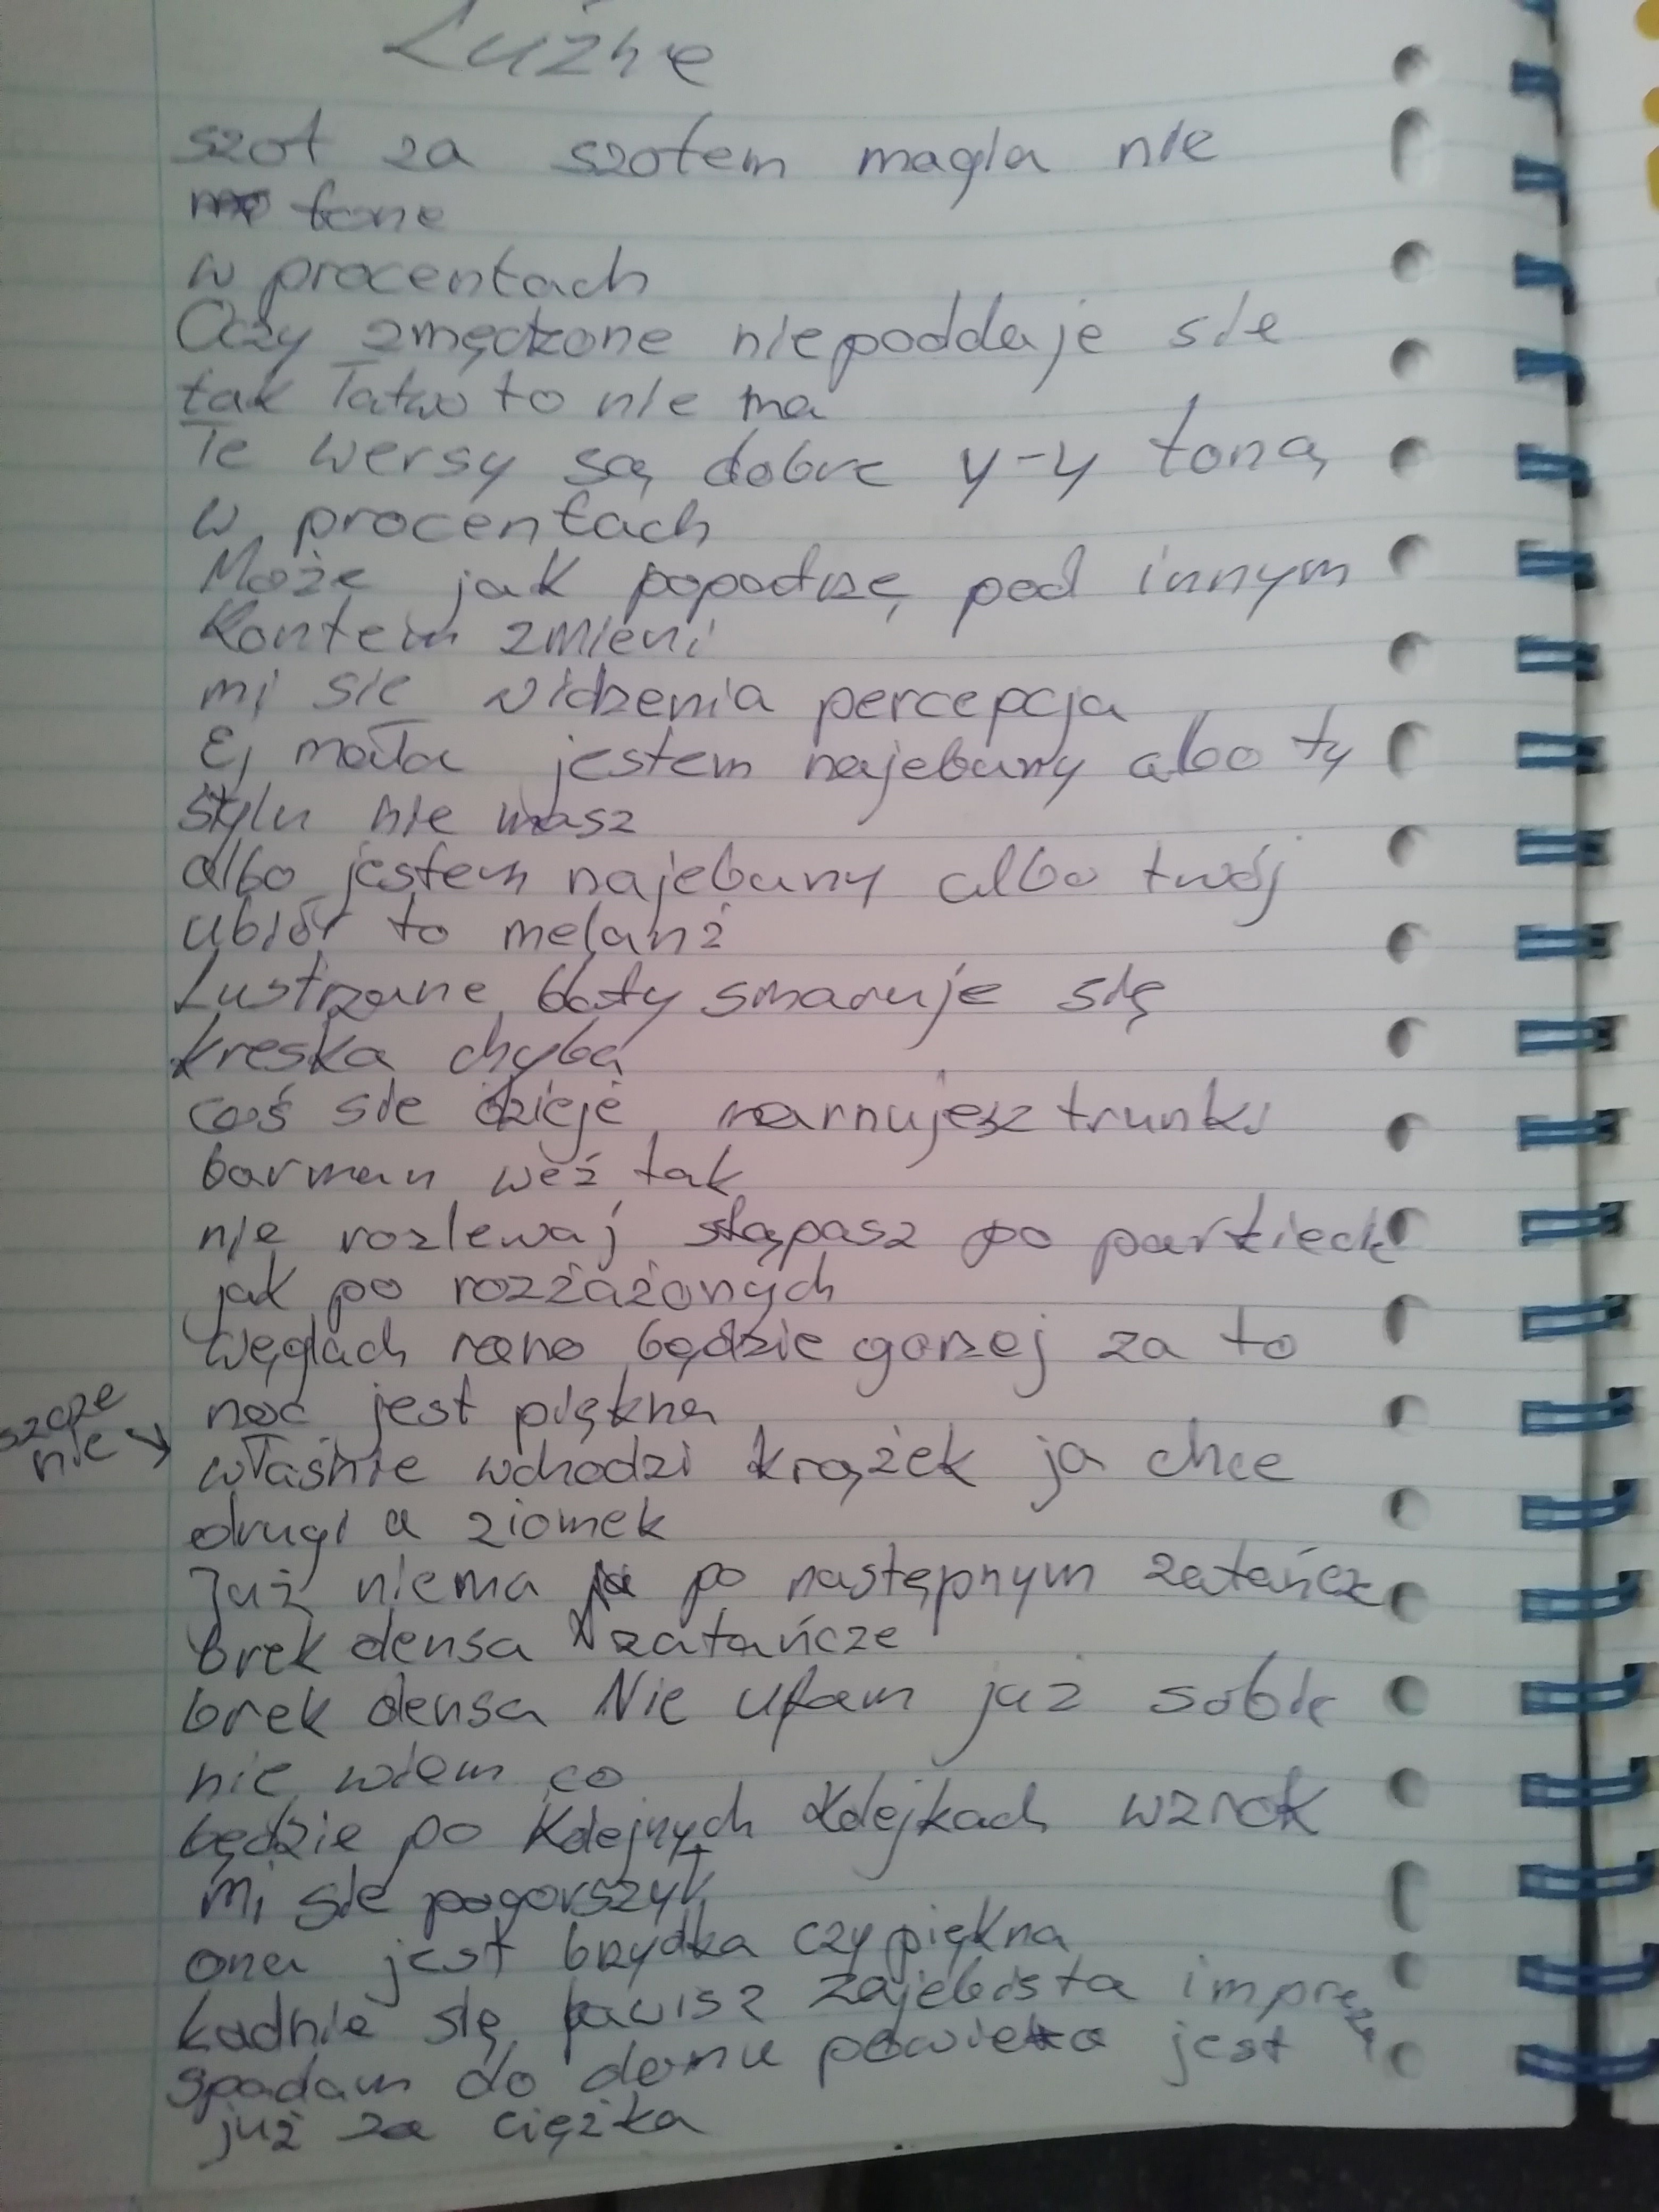 Luźne
szot za szotem magla nie
tone
w procentach
Oczy zmęczone niepoddaje sie
tak łatwo to nie ma
Te wersy są dobre y-y toną
w procentach
Może jak popatrzę pod innym
kontem zmieni
mi sie widzenia percepcja
Ej mała jestem najebany albo ty
stylu nie masz
albo jestem najebany albo twój
ubiór to melanż
Lustrzane blaty smaruje się
kreska chyba
coś sie dzieje marnujesz trunki
barman weź tak
nie rozlewaj stąpasz po parkiecie
jak po rozżażonych
węglach rano będzie gorzej za to
noc jest piękna
szcze
nie →
właśnie wchodzi krążek ja chce
drugi a ziomek
Już niema ja po następnym zatańcze
brek densa zatańcze
brek densa Nie ufam już sobie
nie wiem co
będzie po kolejnych kolejkach wzrok
mi sie pogorszył
ona jest brzydka czy piękna
Ładnie się bawisz zajebista impreza
spadam do domu powieka jest
już za ciężka